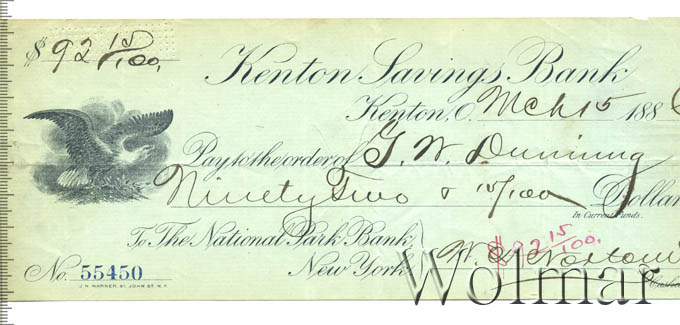 $92 15/100.
Kenton Savings Bank
Kenton, O. Mch 15 188
Pay to the order of T. W. Dunning
Ninety Two & 15/100 Dollar
In Current Funds.
To The National Park Bank,
New York.
$92 15/100.
No. 55450
J. H. WARNER, 81 JOHN ST. N.Y.
Wolmar